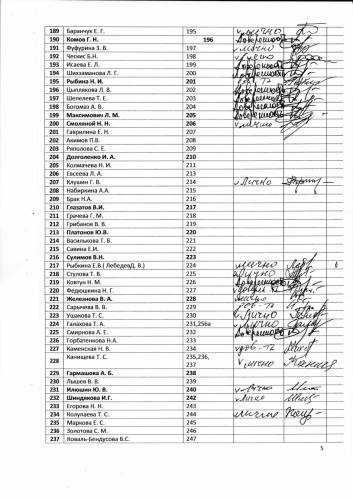 189 Баранчук Е. Г. 195 лично
190 Комов Г. Н. 196 доверенность
191 Фуфурина З. В. 197 лично
192 Ческис Б.Н. 198 лично
193 Исаева Е. Л. 199 доверенность
194 Шихзаманова Л. Г. 200 доверенность
195 Рыбина Н. И. 201
196 Цыпликова Л. В. 202 доверенность
197 Шепелева Т. Е. 203 доверенность
198 Богомаз А. В. 204 доверенность
199 Максимович Л. М. 205 доверенность
200 Смоляной Н. Н. 206 лично
201 Гаврилина Е. Н. 207
202 Акимов П.В. 208
203 Ряполова С. Е. 209
204 Долголенко И. А. 210
205 Колмачева Н. И. 211
206 Евсеева Л. А. 213
207 Клушин Г. В. 214 лично
208 Набиркина А.А. 215
209 Брак Н.А. 216
210 Глазатов В.И. 217
211 Грачева Г. М. 218
212 Грибанов В. В. 219
213 Платонов Ю.В. 220
214 Василькова Т. В. 221
215 Савина Е.И. 222
216 Сулимов В.Н. 223
217 Рыбкина Е.В.( ЛебедевД. В.) 224 лично
218 Стулова Т. В. 225 лично
219 Ковтун Н. М. 226 доверенность
220 Федюшкина Н. Г. 227
221 Железнова В. А. 228 лично
222 Сарычева В. В. 229
223 Ушакова Т. С. 230 лично
224 Галахова Т. А. 231,256а лично
225 Смирнова А. Е. 232 доверенность
226 Горбатенкова Н.А. 233
227 Каменская Н. В. 234
228 Канищева Т. С. 235,236, 237 лично
229 Гармашова А. Б. 238
230 Лышев В. В. 239
231 Илюшин Ю. В. 240 лично
232 Шиндякова И.Г. 242 лично
233 Егорова Н. Н. 243
234 Колупаева Т. С. 244 лично
235 Маркова Е. С. 245
236 Золотова С. М. 246
237 Коваль-Бендусова В.С. 247
5